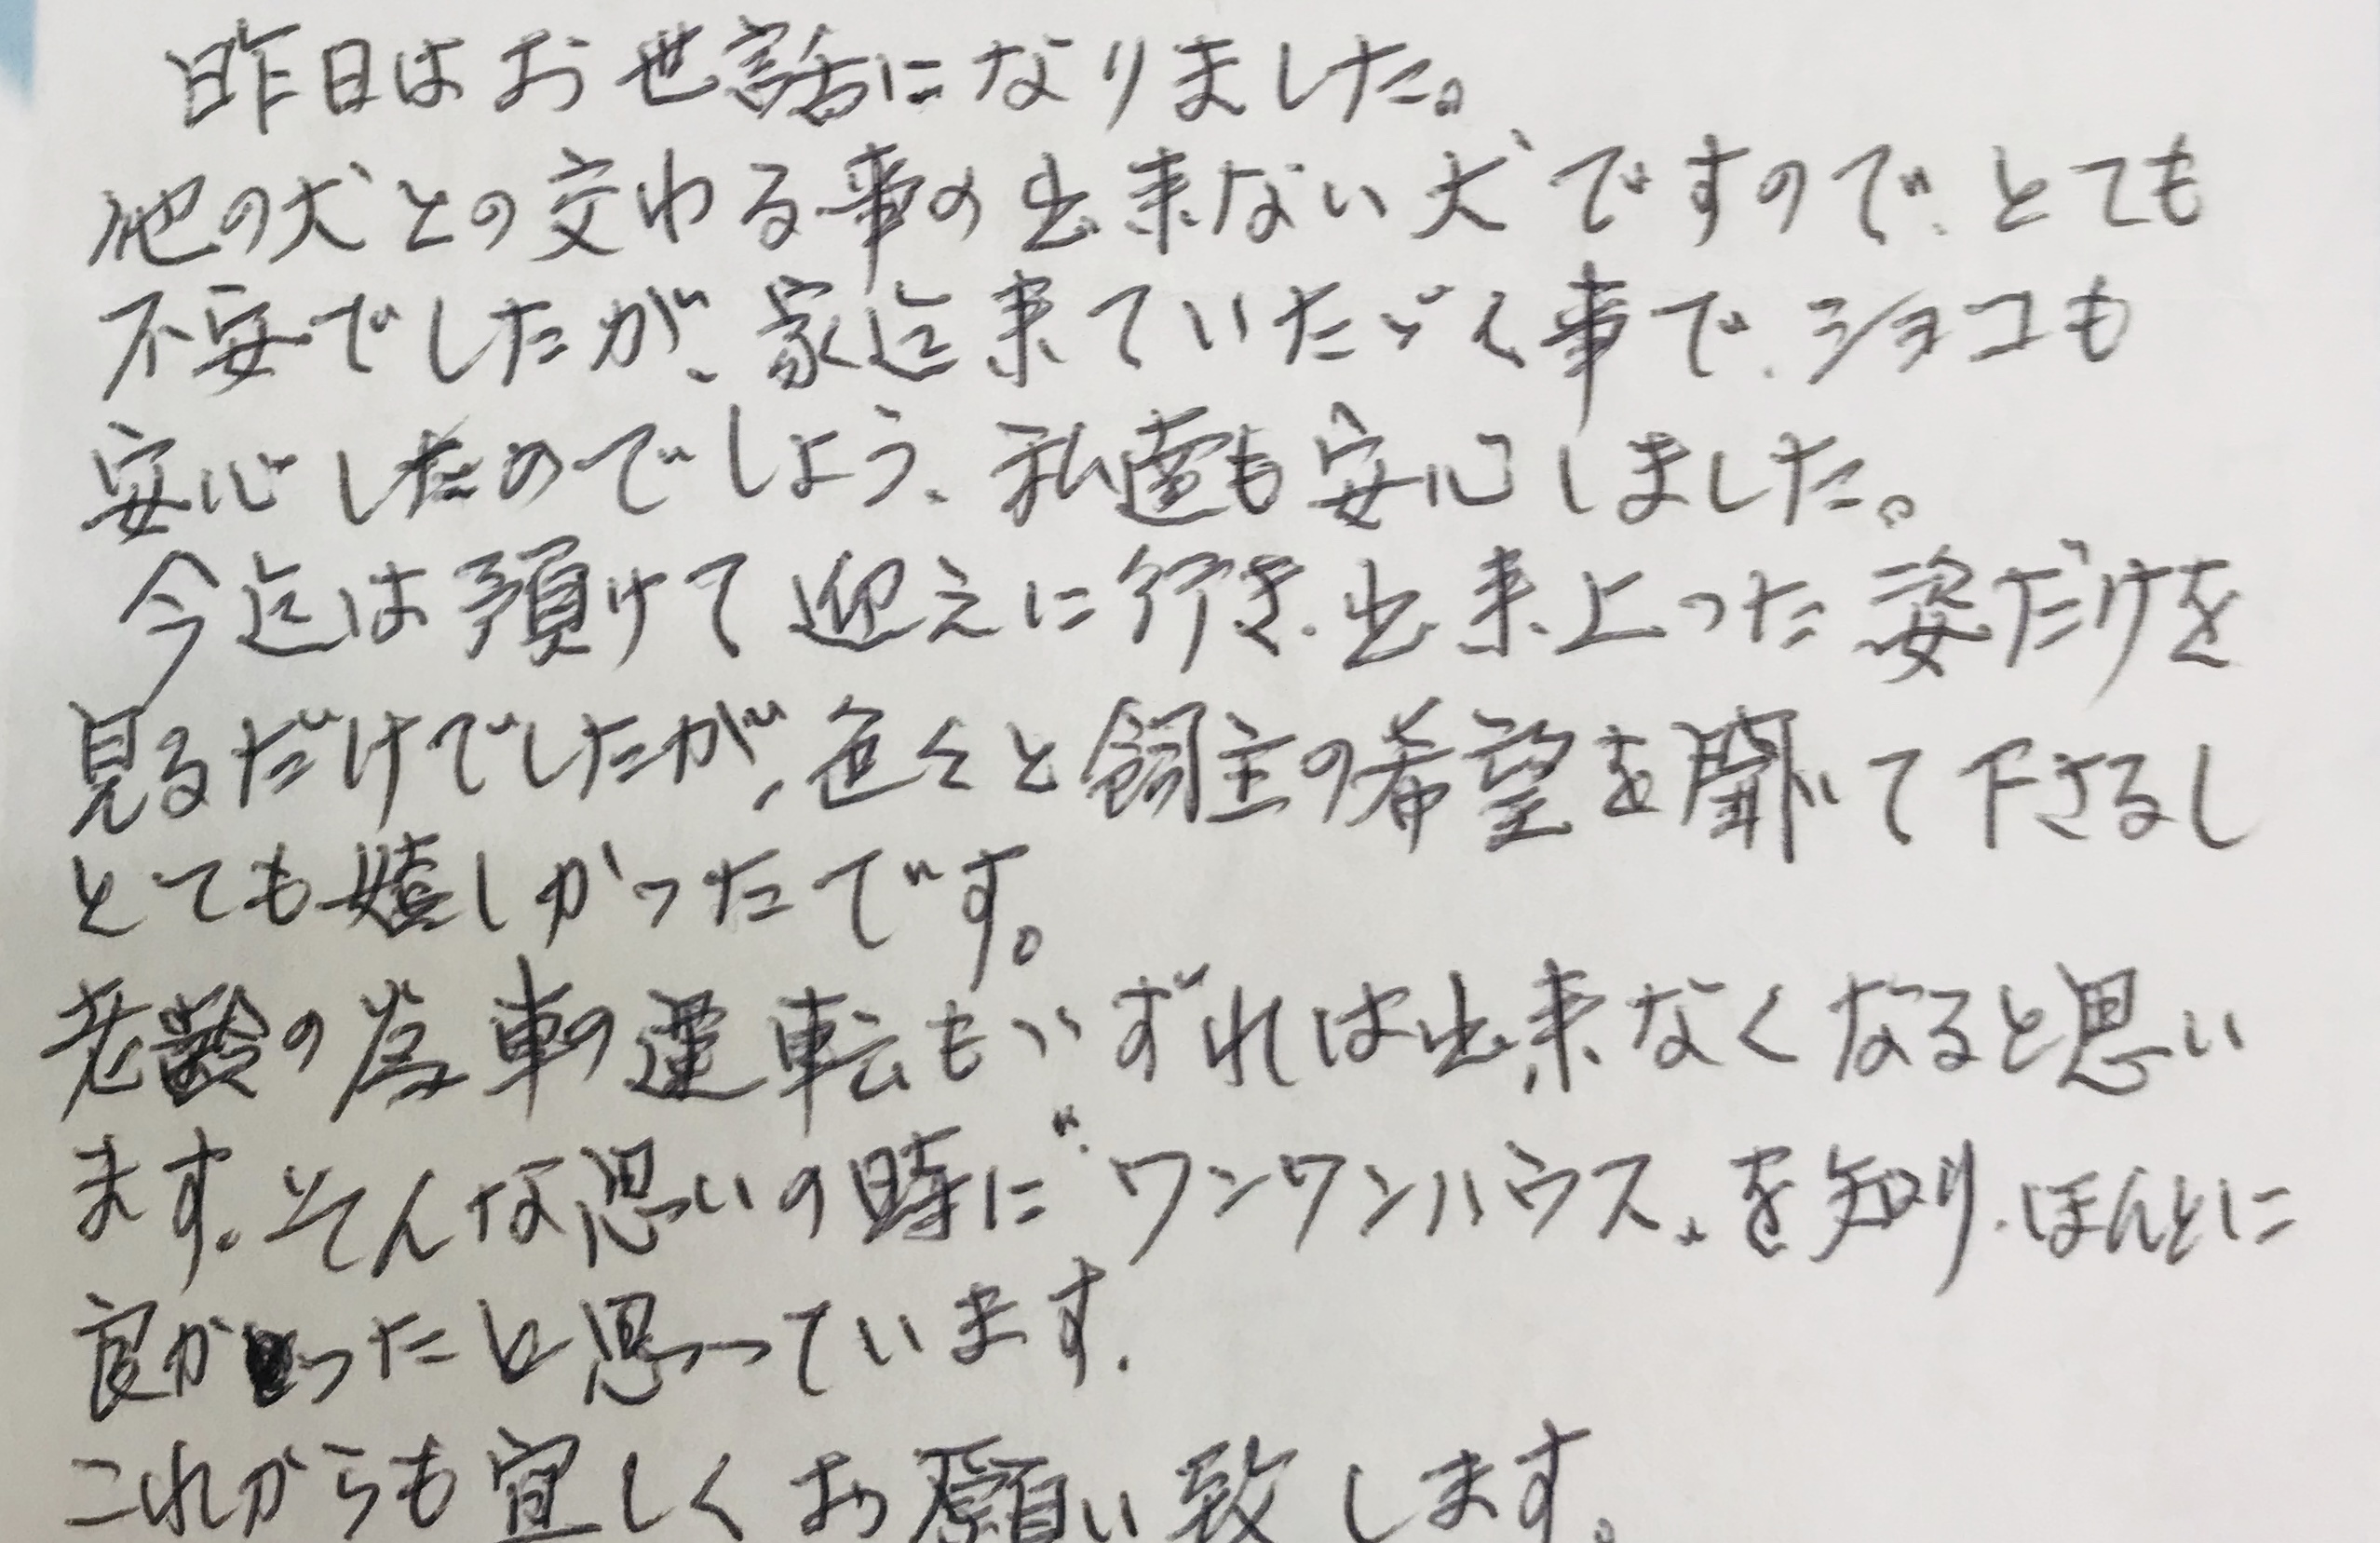 昨日はお世話になりました。
他の犬との交わる事の出来ない犬ですので、とても
不安でしたが、家迄来ていたゞく事で、ショコも
安心したのでしょう、私達も安心しました。
今迄は預けて迎えに行き、出来上った姿だけを
見るだけでしたが、色々と飼主の希望を聞いて下さるし
とても嬉しかったです。
老齢の為車の運転もいずれは出来なくなると思い
ます。そんな思いの時に〝ワンワンハウス〟を知り、ほんとに
良かったと思っています。
これからも宜しくお願い致します。